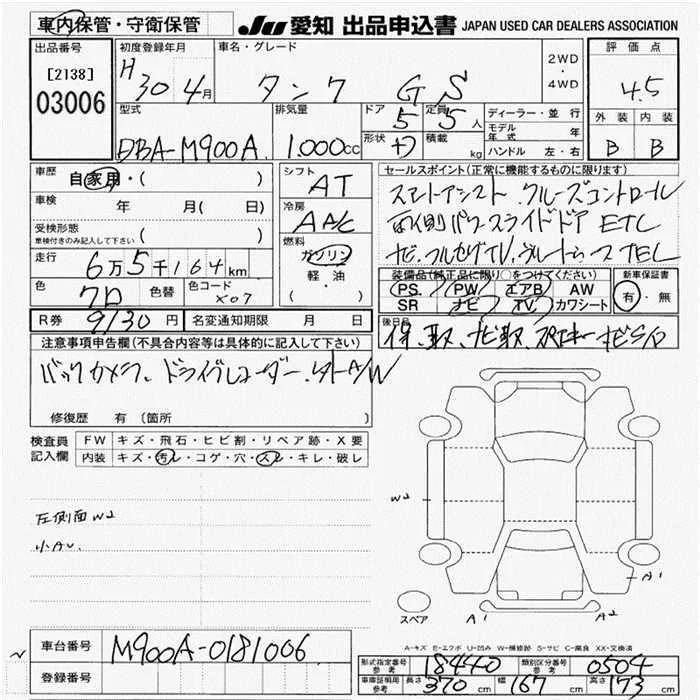 車内保管・守衛保管
JU 愛知 出品申込書 JAPAN USED CAR DEALERS ASSOCIATION
出品番号
[2138]
03006
初度登録年月
H30年4月
車名・グレード
タンク GS
2WD
・
4WD
評価点
4.5
外装 内装
B B
型式
DBA-M900A
排気量
1.000cc
ドア
5
定員
5人
形状
積載
kg
ディーラー・並行
モデル年式 年
ハンドル 左・右
車歴
自家用・( )
車検 年 月( 日)
受検形態
車検付きのみ記入して下さい ( )
走行
6万5千164km
色
クロ
色替
色コード
X07
R券 9130円
名変通知期限 月 日
シフト
AT
冷房
AAC
燃料
ガソリン
軽・油
( )
セールスポイント(正常に機能するものに限ります)
スマートアシスト クルーズコントロール
両側パワースライドドア ETC
ナビ フルセグTV ブルートゥース TEL
装備品(純正品に限り○をつけてください)
PS PW エアB AW
SR ナビ TV カワシート
新車保証書
有・無
後日品
保、取、ナビ取、
注意事項申告欄(不具合内容等は具体的に記入して下さい)
バックカメラ、ドライブレコーダー、A/W
修復歴 有(箇所 )
検査員記入欄
FW キズ・飛石・ヒビ割・リペア跡・X要
内装 キズ・汚レ・コゲ・穴・スレ・キレ・破レ
左側面W2
小AU.
W2
A1
A1
A2
スペア
A-キズ E-エクボ U-凹み W-補修跡 S-サビ C-腐食 XX-交換済
車台番号 M900A-0181006
登録番号
形式指定番号参考 18440
類別区分番号参考 0504
車庫証明用参考 長さ 370cm 幅 167cm 高さ 173cm